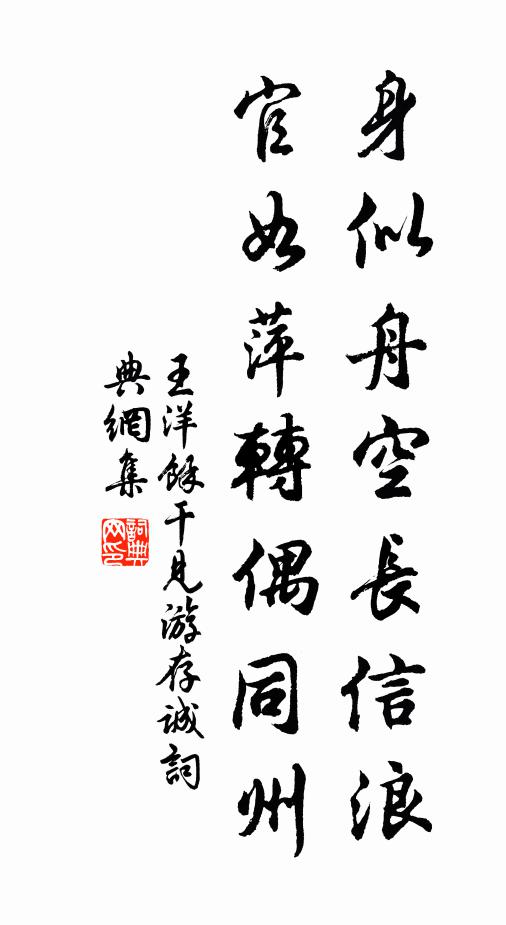 身似舟空長信浪
官如萍轉偶同州
王洋餘干見游存誠詞
典網集
詞典网印